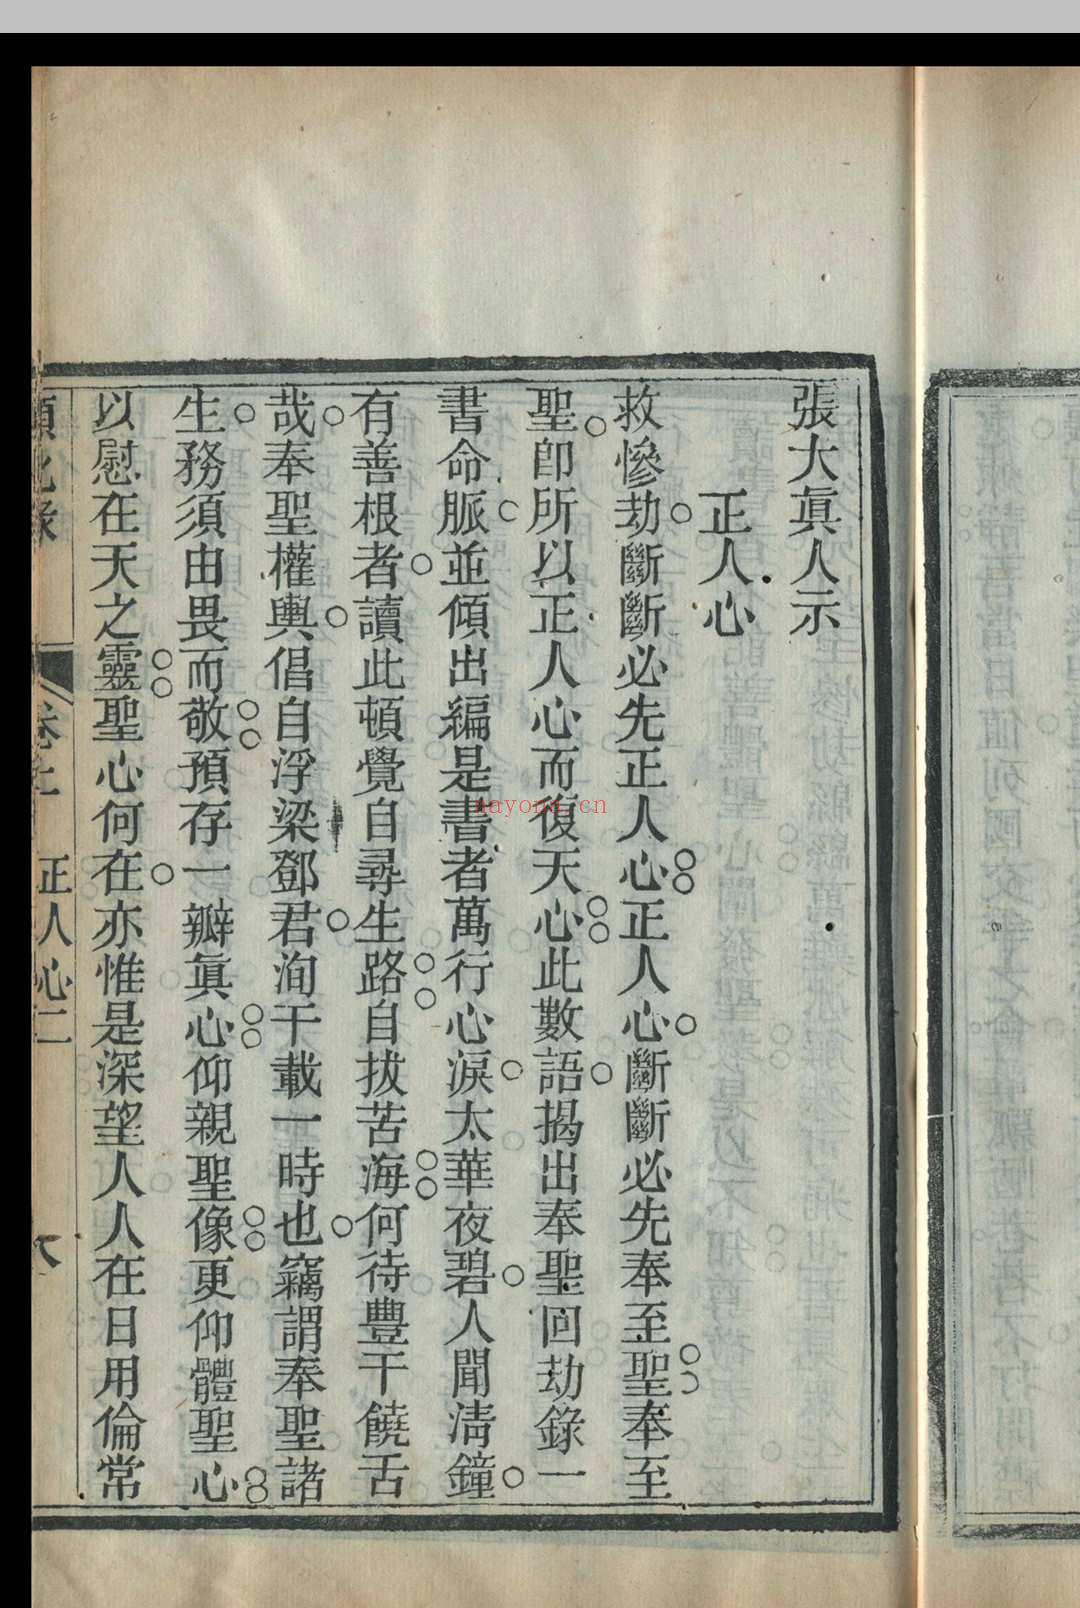 張大眞人示
正人心
救慘劫斷斷必先正人心正人心斷斷必先奉至聖奉至
聖卽所以正人心而復天心此數語揭出奉聖回劫錄一
書命脈並傾出編是書者萬行心淚太華夜碧人聞淸鐘
有善根者讀此頓覺自尋生路自拔苦海何待豐干饒舌
哉奉聖權輿倡自浮梁鄧君洵千載一時也竊謂奉聖諸
生務須由畏而敬預存一瓣眞心仰親聖像更仰體聖心
以慰在天之靈聖心何在亦惟是深望人人在日用倫常
卷上 正人心二
nayona.cn